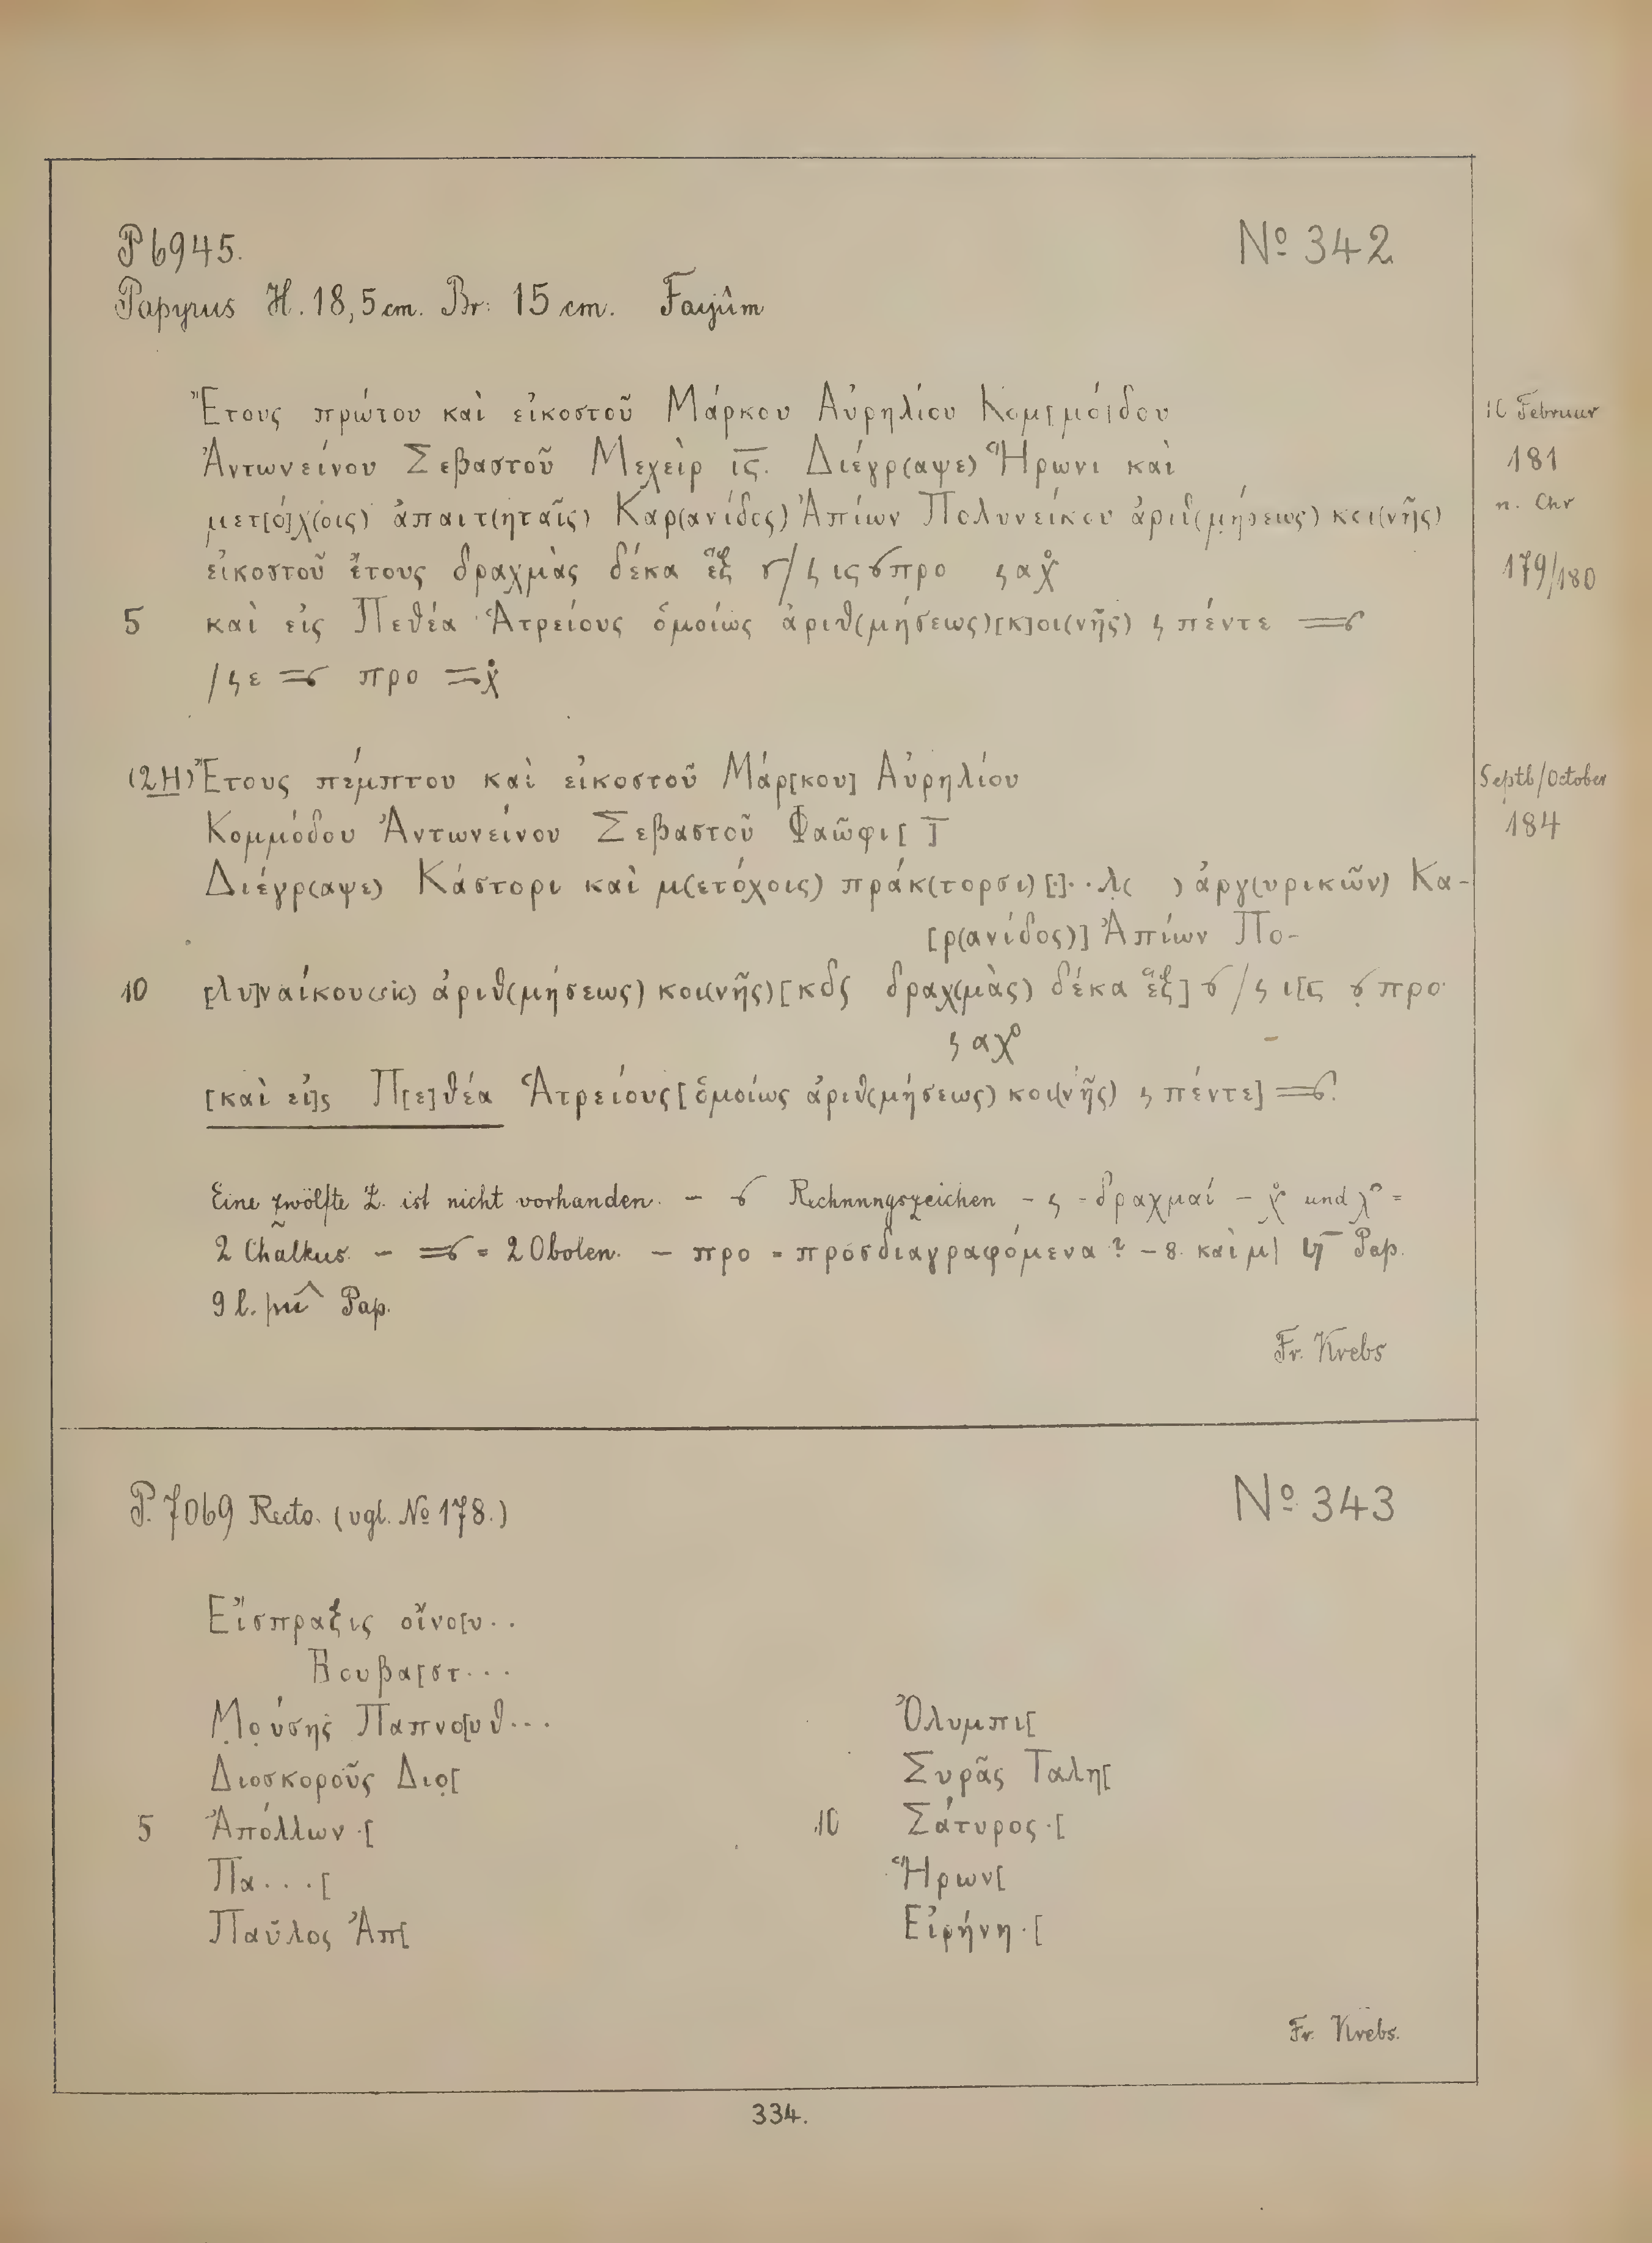 P 6945. № 342
Papyrus H. 18,5 cm. Br: 15 cm. Fayûm
Ἔτους πρώτου καὶ εἰκοστοῦ Μάρκου Αὐρηλίου Κομ[μό]δου 10 Februar
Ἀντωνείνου Σεβαστοῦ Μεχεὶρ ις. Διέγρ(αψε) Ἥρωνι καὶ 181
μετ[ό]χ(οις) ἀπαιτ(ηταῖς) Καρ(ανίδος) Ἀπίων Πολυνείκου ἀριθ(μήσεως) κοι(νῆς) n. Chr
εἰκοστοῦ ἔτους δραχμὰς δέκα ἓξ / ις προ αχ 179/180
5 καὶ εἰς Πεθέα Ἁτρείους ὁμοίως ἀριθ(μήσεως) [κ]οι(νῆς) ϛ πέντε =
/ϛ ε = προ =χ
(2H) Ἔτους πέμπτου καὶ εἰκοστοῦ Μάρ[κου] Αὐρηλίου Septb/October
Κομμόδου Ἀντωνείνου Σεβαστοῦ Φαῶφι [ ] 184
Διέγρ(αψε) Κάστορι καὶ μ(ετόχοις) πράκ(τορσι) [.]..λ( ) ἀργ(υρικῶν) Κα-
[ρ(ανίδος)] Ἀπίων Πο-
10 [λυ]ναίκου (sic) ἀριθ(μήσεως) κοι(νῆς) [κδϛ δραχ(μὰς) δέκα ἓξ] / ϛ ι[ς προ
ϛ αχο
[καὶ εἰ]ς Π[ε]θέα Ἁτρείους [ὁμοίως ἀριθ(μήσεως) κοι(νῆς) ϛ πέντε] =
Eine zwölfte Z. ist nicht vorhanden. – Rechnungszeichen – ϛ = δραχμαί – χο und χο =
2 Chalkus. – = = 2 Obolen. – προ = προσδιαγραφόμενα? – 8. καὶ μ| Pap.
9 l. Pap.
Fr. Krebs
P. 7069 Recto. (vgl. № 178.) № 343
Εἴσπραξις οἴνο[υ..
Βουβα[στ...
Μούσης Παπνο[υθ...
Διοσκοροῦς Διο[
5 Ἀπόλλων .[
Πα...[
Παῦλος Ἀπ[
Ὀλυμπι[
Συρᾶς Ταλη[
10 Σάτυρος .[
Ἥρων[
Εἰρήνη .[
Fr. Krebs.
334.